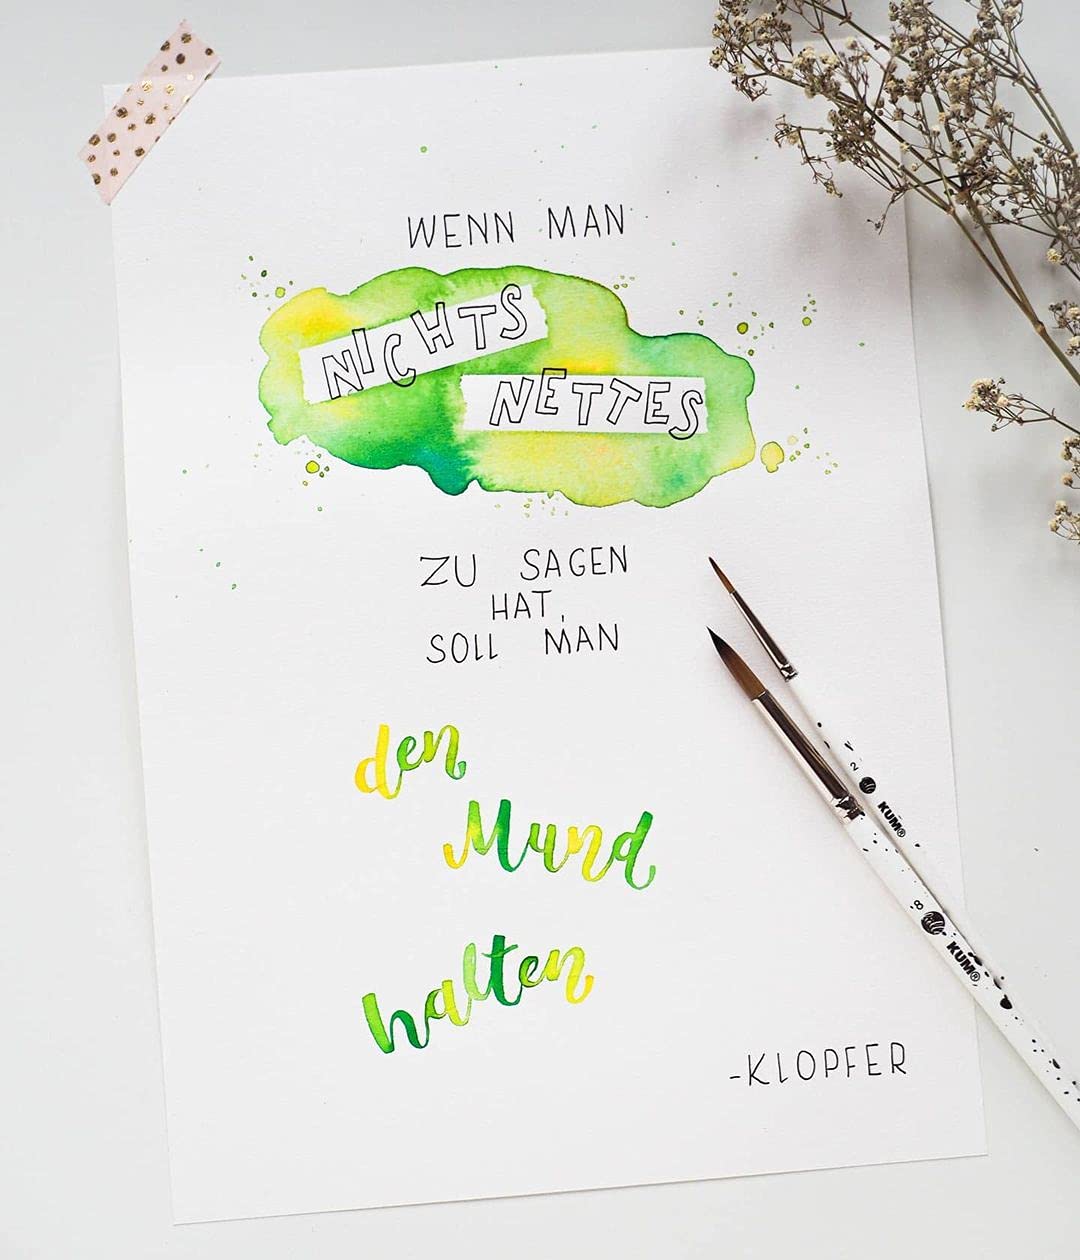 WENN MAN
NICHTS
NETTES
ZU SAGEN
HAT,
SOLL MAN
den
Mund
halten
-KLOPFER
2
KUM®
8
KUM®